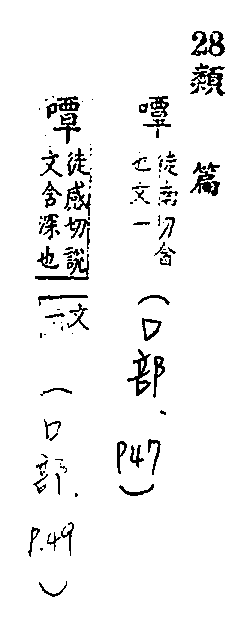 28類 篇
嘾
徒南切含
也文一
（口部．P47）
嘾
徒感切說
文含深也
文
一
（口部．P.49）